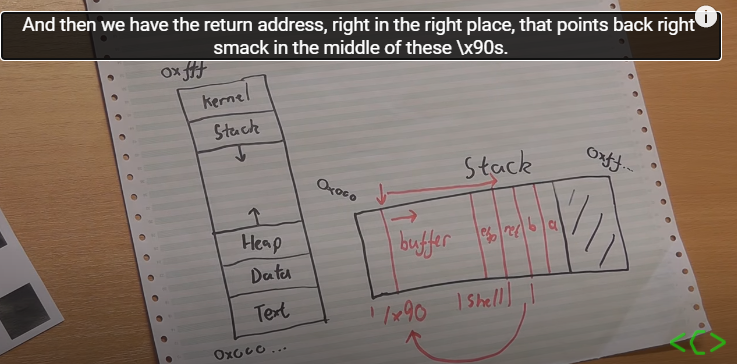 And then we have the return address, right in the right place, that points back right
smack in the middle of these \x90s.
i
0xfff
Kernel
Stack
Heap
Data
Text
0x000...
Stack
0x000
0xff...
buffer
ebp
ret
b
a
\x90
|shell|
<C>